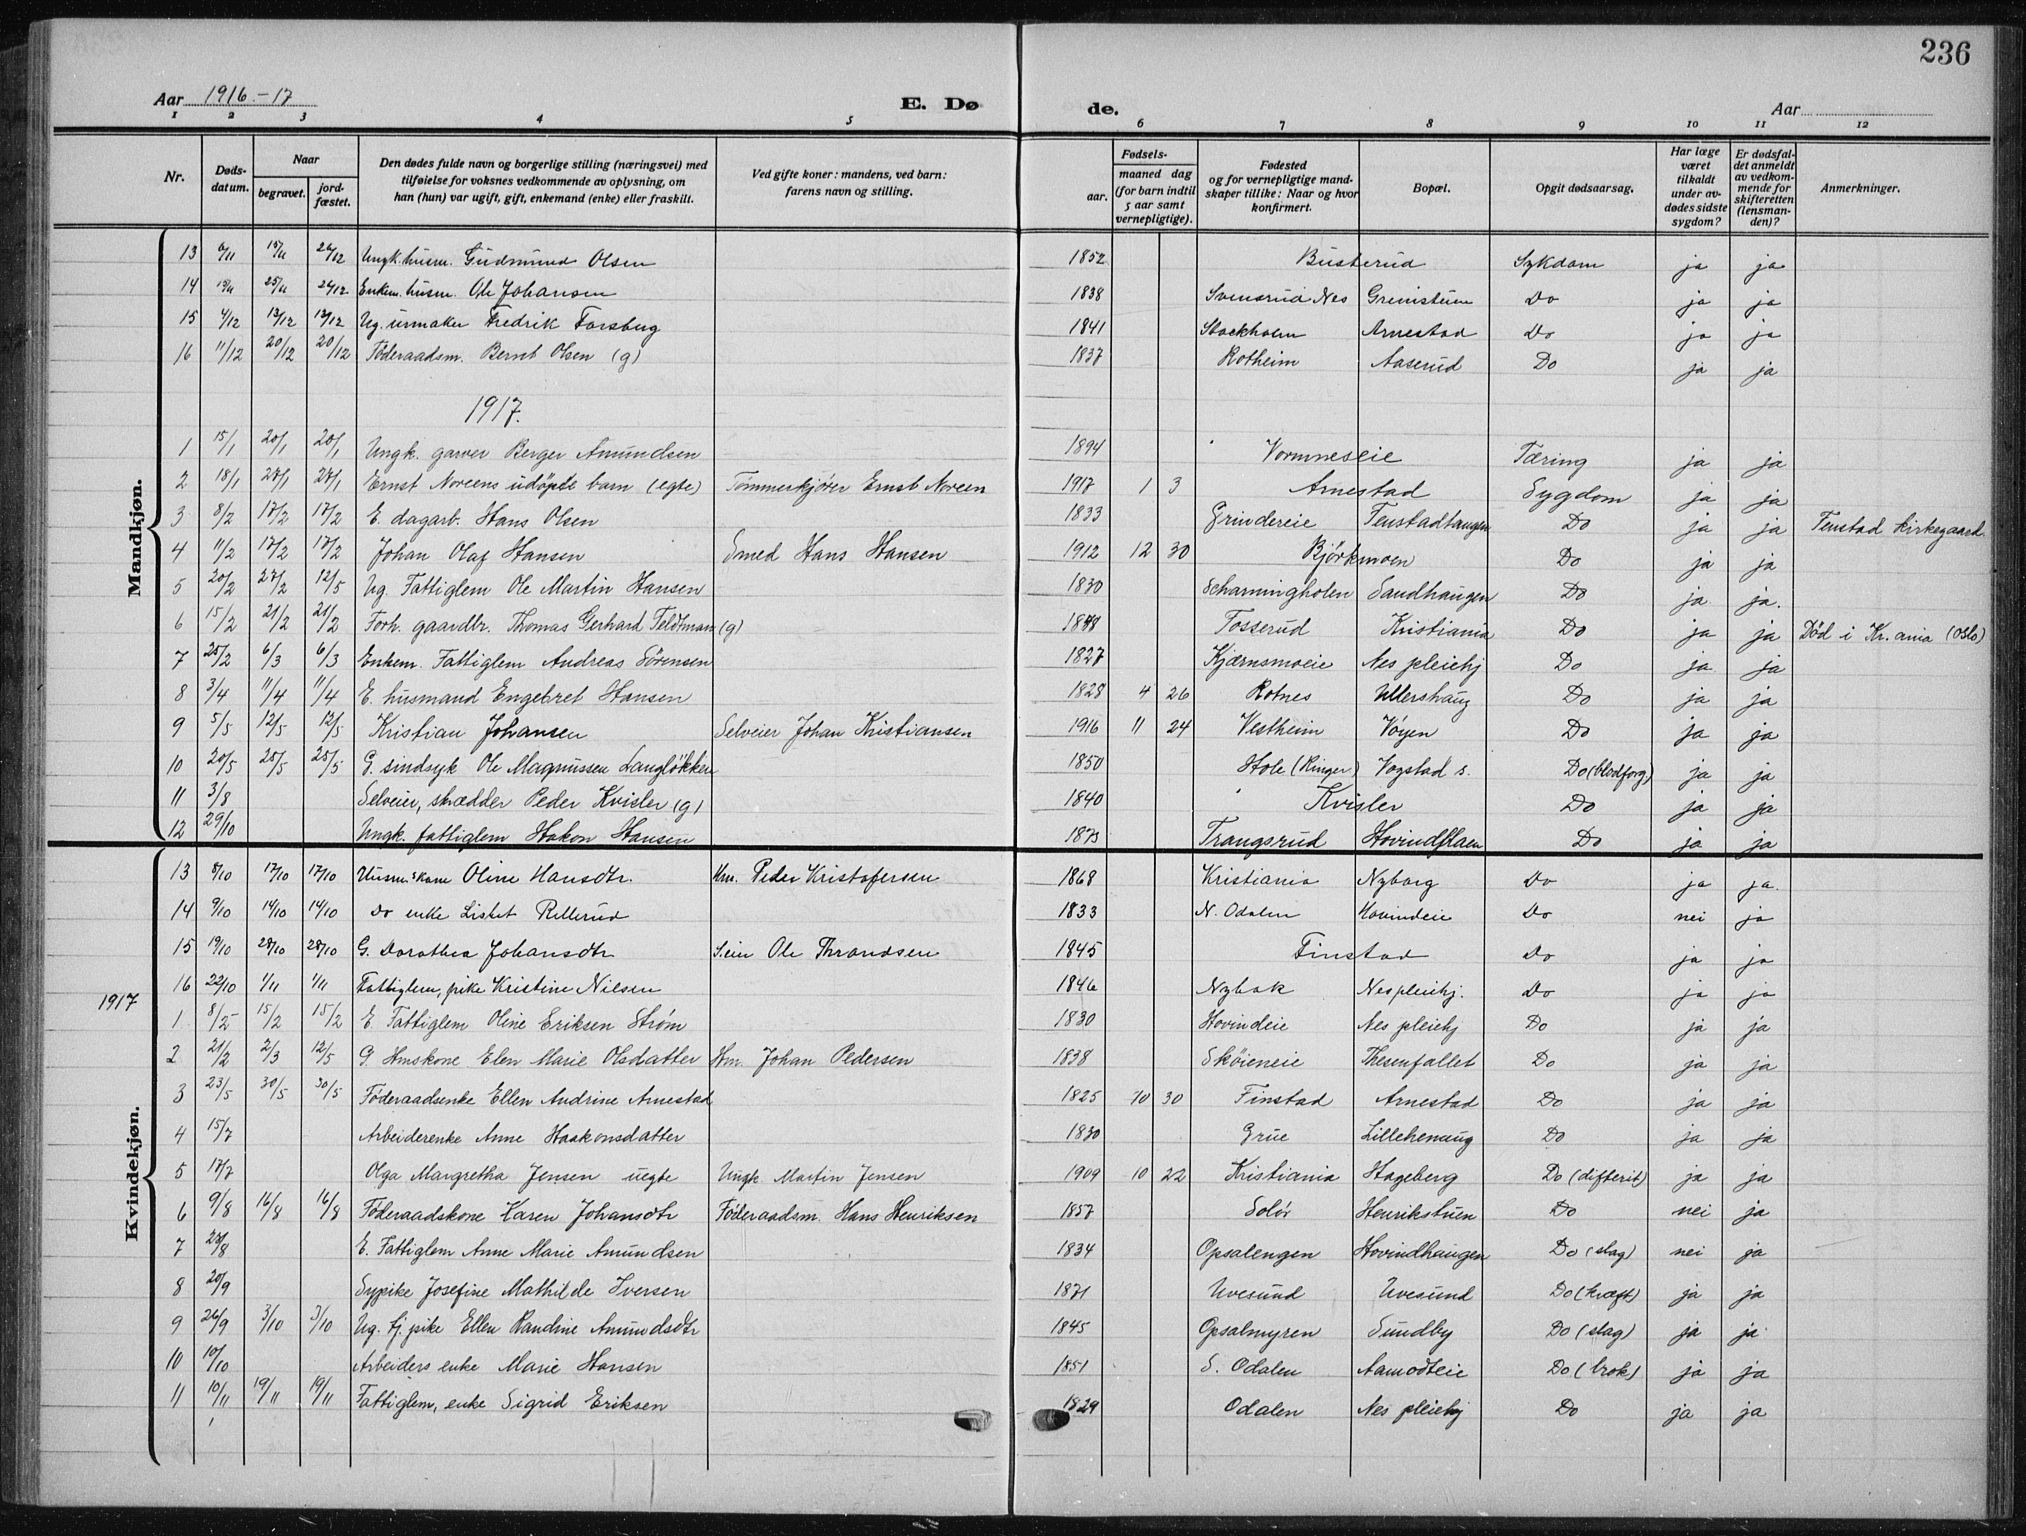 236
Aar 1916.-17 E. Dø de. Aar
1 2 3 4 5 6 7 8 9 10 11 12
Nr. Døds-datum. Naar begravet. jord-fæstet. Den dødes fulde navn og borgerlige stilling (næringsvei) med tilføielse for voksnes vedkommende av oplysning, om han (hun) var ugift, gift, enkemand (enke) eller fraskilt. Ved gifte koner: mandens, ved barn: farens navn og stilling. Fødsels- aar. maaned dag (for barn indtil 5 aar samt vernepligtige). Fødested og for vernepligtige mand-skaper tillike: Naar og hvor konfirmert. Bopæl. Opgit dødsaarsag. Har læge været tilkaldt under av-dødes sidste sygdom? Er dødsfal-det anmeldt av vedkom-mende for skifteretten (lensman-den)? Anmerkninger.
Mandkjøn.
13 6/11 15/11 26/12 Ungk. husm. Gudmund Olsen 1852 Busterud Sykdom ja ja
14 25/11 Enkem. husm. Ole Johansen 1838 Svensrud Nes Grenistuen Do ja ja
15 4/12 13/12 13/12 Ug. urmaker Fredrik Forsberg 1841 Stockholm Arnestad Do ja ja
16 11/12 20/12 20/12 Føderaadsm. Bernt Olsen (g) 1837 Rotheim Aaserud Do ja ja
1917.
1 15/1 20/1 20/1 Ungk. garver Berger Amundsen 1894 Vormneseie Tæring ja ja
2 18/1 27/1 27/1 Ernst Noreens udøpte barn (egte) Tømmerkjører Ernst Noreen 1917 1 3 Arnestad Sygdom ja ja
3 8/2 17/2 17/2 E. dagarb. Hans Olsen 1833 Grindereie Fenstadtangen Do ja ja Fenstad kirkegaard.
4 11/2 17/2 17/2 Johan Olaf Hansen Smed Hans Hansen 1912 12 30 Bjørkmoen Do ja ja
5 20/2 27/2 12/5 Ug. Fattiglem Ole Martin Hansen 1830 Scharningholen Sandhaugen Do ja ja.
6 15/2 21/2 21/2 Forh. gaardbr. Thomas Gerhard Feldtman (g) Tosserud Kristiania Do ja ja Død i Kr.ania (Oslo)
7 25/2 6/3 6/3 Enkem. Fattiglem Andreas Sørensen 1827 Kjærnsmoeie Nes pleiehj Do ja ja
8 3/4 11/4 11/4 E. husmand Engebret Hansen 1828 4 26 Rotnes Ullershaug Do ja ja
9 5/5 12/5 12/5 Kristian Johansen Selveier Johan Kristiansen 1916 11 24 Vestheim Vøyen Do ja ja
10 20/5 25/5 25/5 G. sindsyk Ole Magnussen Langløkken 1850 Hole (Ringer) Vogstad s. Do (blodforg) ja ja
11 3/8 Selveier, skrædder Peder Kvisler (g) 1840 Kvisler Do ja ja
12 29/10 Ungk. fattiglem Hakon Hansen 1873 Trangsrud Hovindflaen Do ja ja
Kvindekjøn.
13 8/10 17/10 17/10 Husm.skone Oline Hansdtr. Hm. Peder Kristofersen 1868 Kristiania Nyborg Do ja ja.
14 9/10 14/10 14/10 Do enke Lisket Rillerud 1833 N. Odalen Hovindeie Do nei ja
15 19/10 28/10 28/10 G. Dorothea Johansdtr S.eier Ole Thrandsen 1845 Finstad Do ja ja
16 22/10 1/11 1/11 Fattiglem, pike Kristine Nilsen 1846 Nybak Nes pleiehj. Do ja ja
1917
1 8/2 15/2 15/2 E. Fattiglem Oline Eriksen Strøm 1830 Hovindeie Nes pleiehj Do ja ja
2 21/2 2/3 12/5 G. Hmskone Elen Marie Olsdatter Hm. Johan Pedersen 1838 Skøieneie Thesenfallet Do ja ja
3 23/5 30/5 30/5 Føderaadsenke Ellen Andrine Arnestad 1825 10 30 Finstad Arnestad Do ja ja
4 15/7 Arbeiderenke Anne Haakonsdatter 1830 Grue Lillehenaug Do ja ja
5 17/7 Olga Margretha Jensen uegte Ungk Martin Jensen 1909 10 22 Kristiania Hageberg Do (difterit) ja ja
6 9/8 16/8 16/8 Føderaadskone Karen Johansdtr Føderaadsm. Hans Henriksen 1857 Solør Henrikstuen Do nei ja
7 23/8 E. Fattiglem Anne Marie Amundsen 1834 Opsalengen Hovindhaugen Do (slag) nei ja
8 20/9 Sypike Josefine Mathilde Iversen 1871 Uvesund Uvesund Do (kræft) ja ja
9 26/9 3/10 3/10 Ug. tj. pike Ellen Randine Amundsdtr 1845 Opsalmyren Sundby Do (slag) ja ja
10 10/10 Arbeiders enke Marie Hansen 1851 S. Odalen Aamodteie Do (brok) ja ja
11 10/11 19/11 19/11 Fattiglem, enke Sigrid Eriksen 1829 Odalen Nes pleiehj Do ja ja